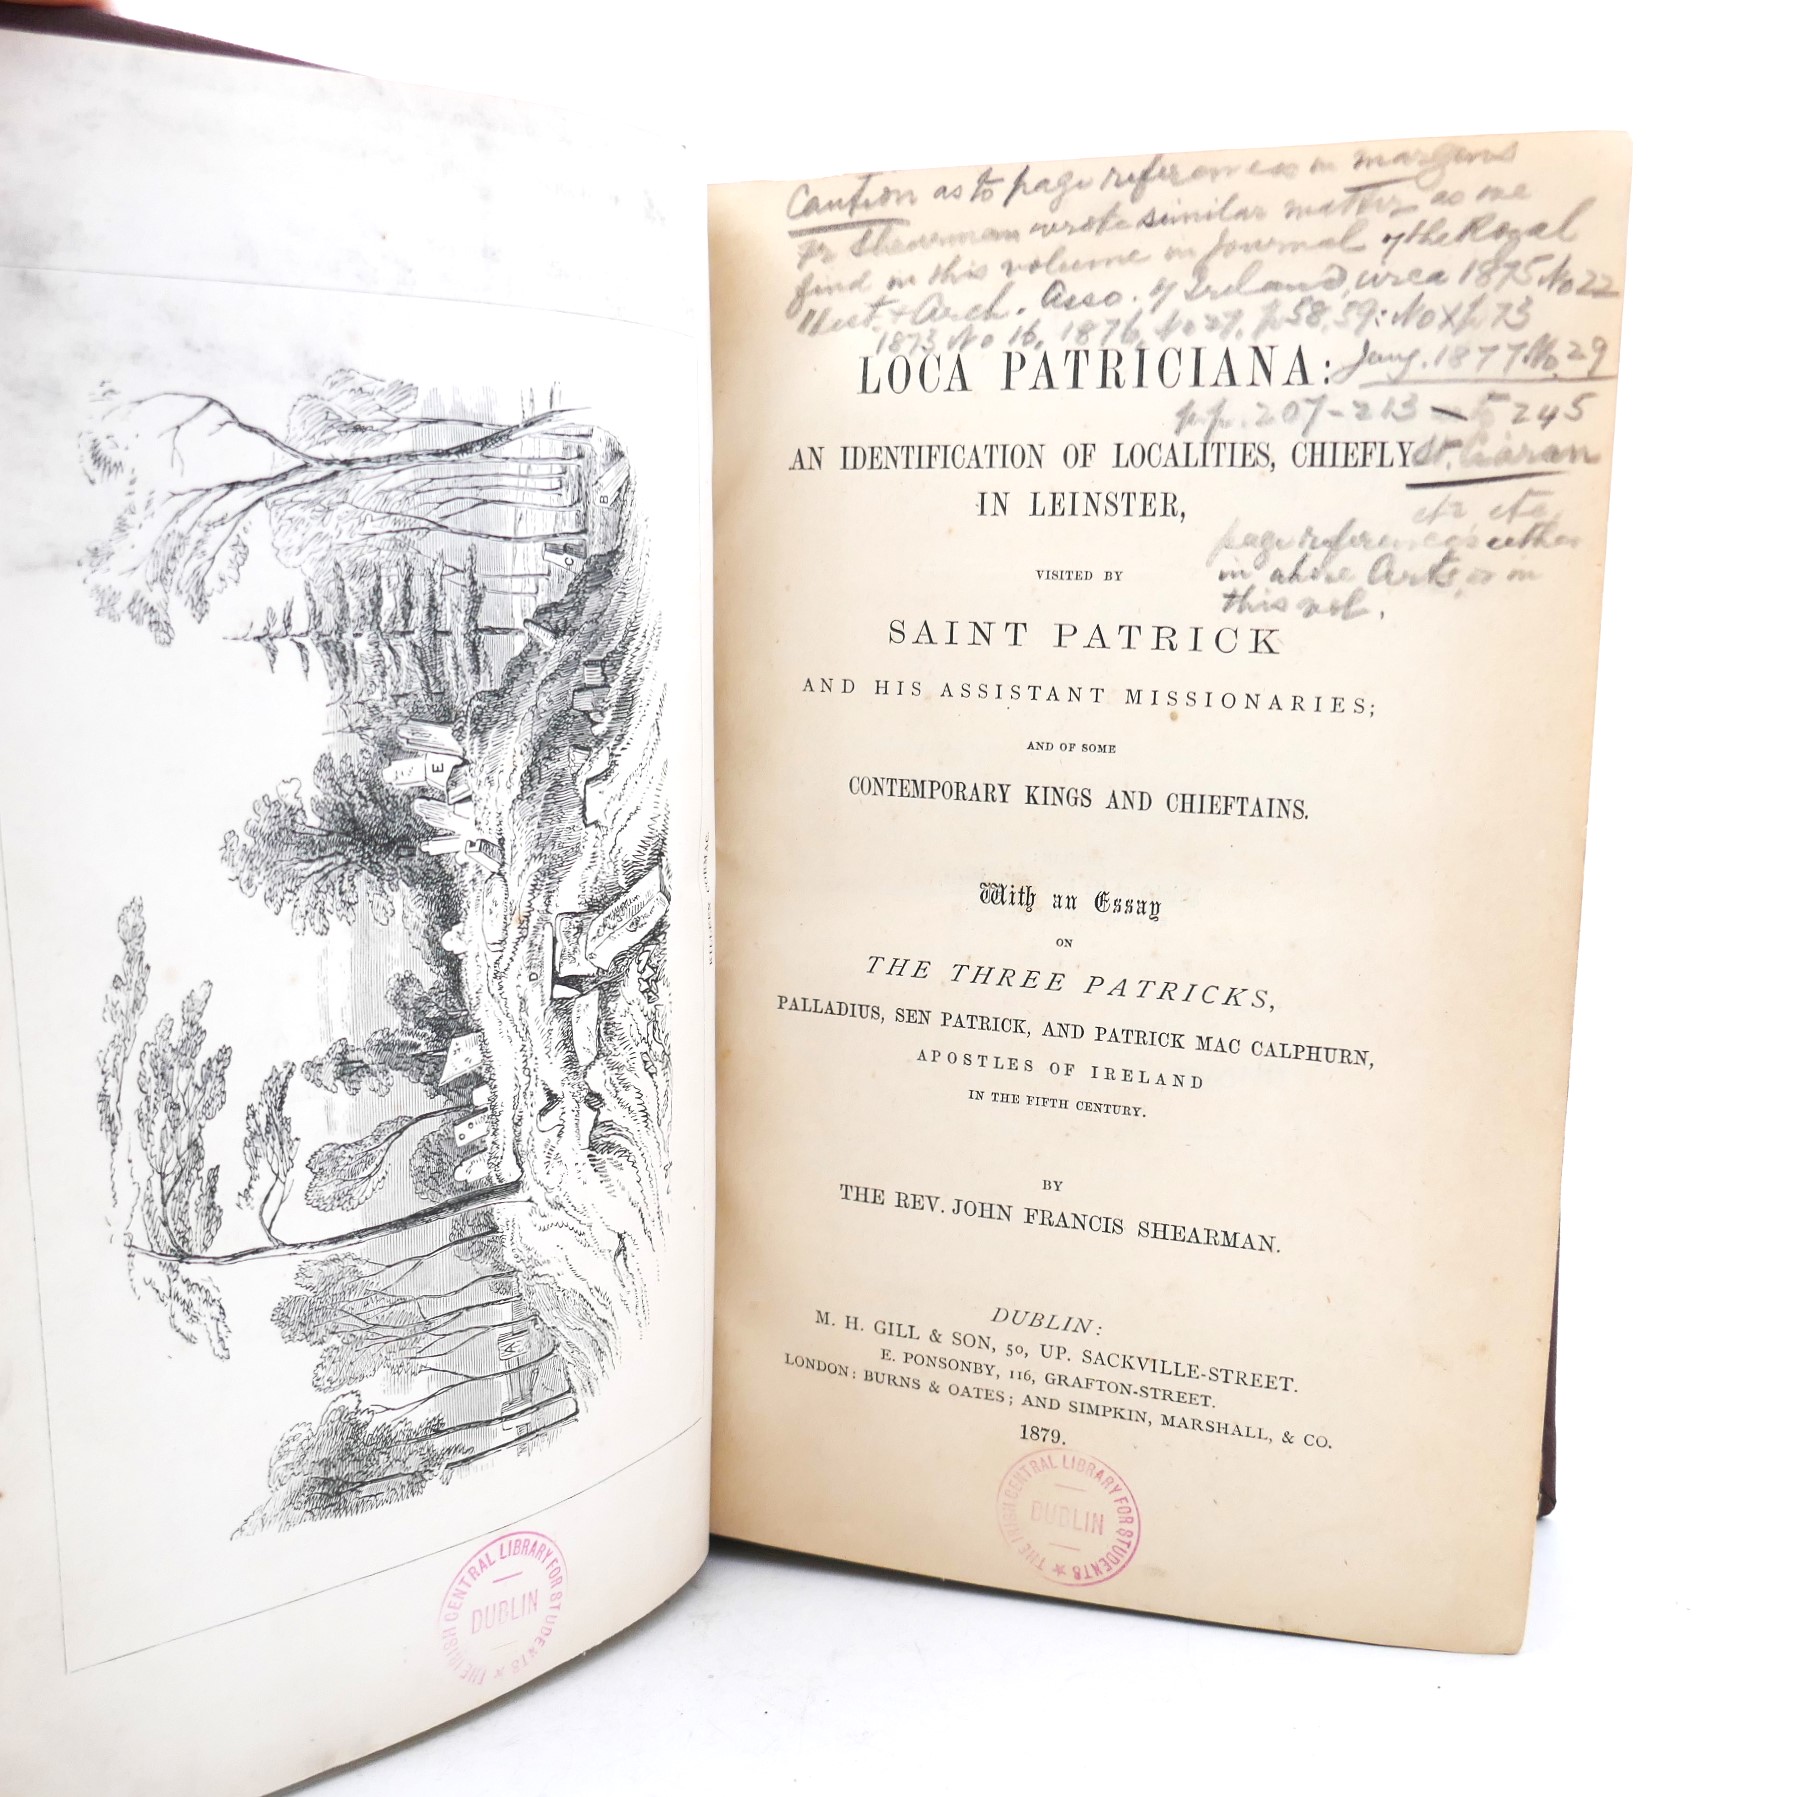 Caution as to page references in margins
Fr Shearman wrote similar matter as we
find in this volume in Journal of the Royal
Hist + Arch. Asso. of Ireland, circa 1875 No 22
1873 No 16, 1876, No 27, p 58, 59: No X p 73
LOCA PATRICIANA:
Jany. 1877 No. 29
pp. 207-213 - to 245
AN IDENTIFICATION OF LOCALITIES, CHIEFLY
St. Ciaran
IN LEINSTER,
etc, etc,
page references either
VISITED BY
in above Arts, or in
this vol.
SAINT PATRICK
AND HIS ASSISTANT MISSIONARIES;
AND OF SOME
CONTEMPORARY KINGS AND CHIEFTAINS.
With an Essay
ON
THE THREE PATRICKS,
PALLADIUS, SEN PATRICK, AND PATRICK MAC CALPHURN,
APOSTLES OF IRELAND
IN THE FIFTH CENTURY.
BY
THE REV. JOHN FRANCIS SHEARMAN.
DUBLIN:
M. H. GILL & SON, 50, UP. SACKVILLE-STREET.
E. PONSONBY, 116, GRAFTON-STREET.
LONDON: BURNS & OATES; AND SIMPKIN, MARSHALL, & CO.
1879.
THE IRISH CENTRAL LIBRARY FOR STUDENTS
DUBLIN
KILLEEN CORMAC.
A
B
C
D
E
THE IRISH CENTRAL LIBRARY FOR STUDENTS
DUBLIN